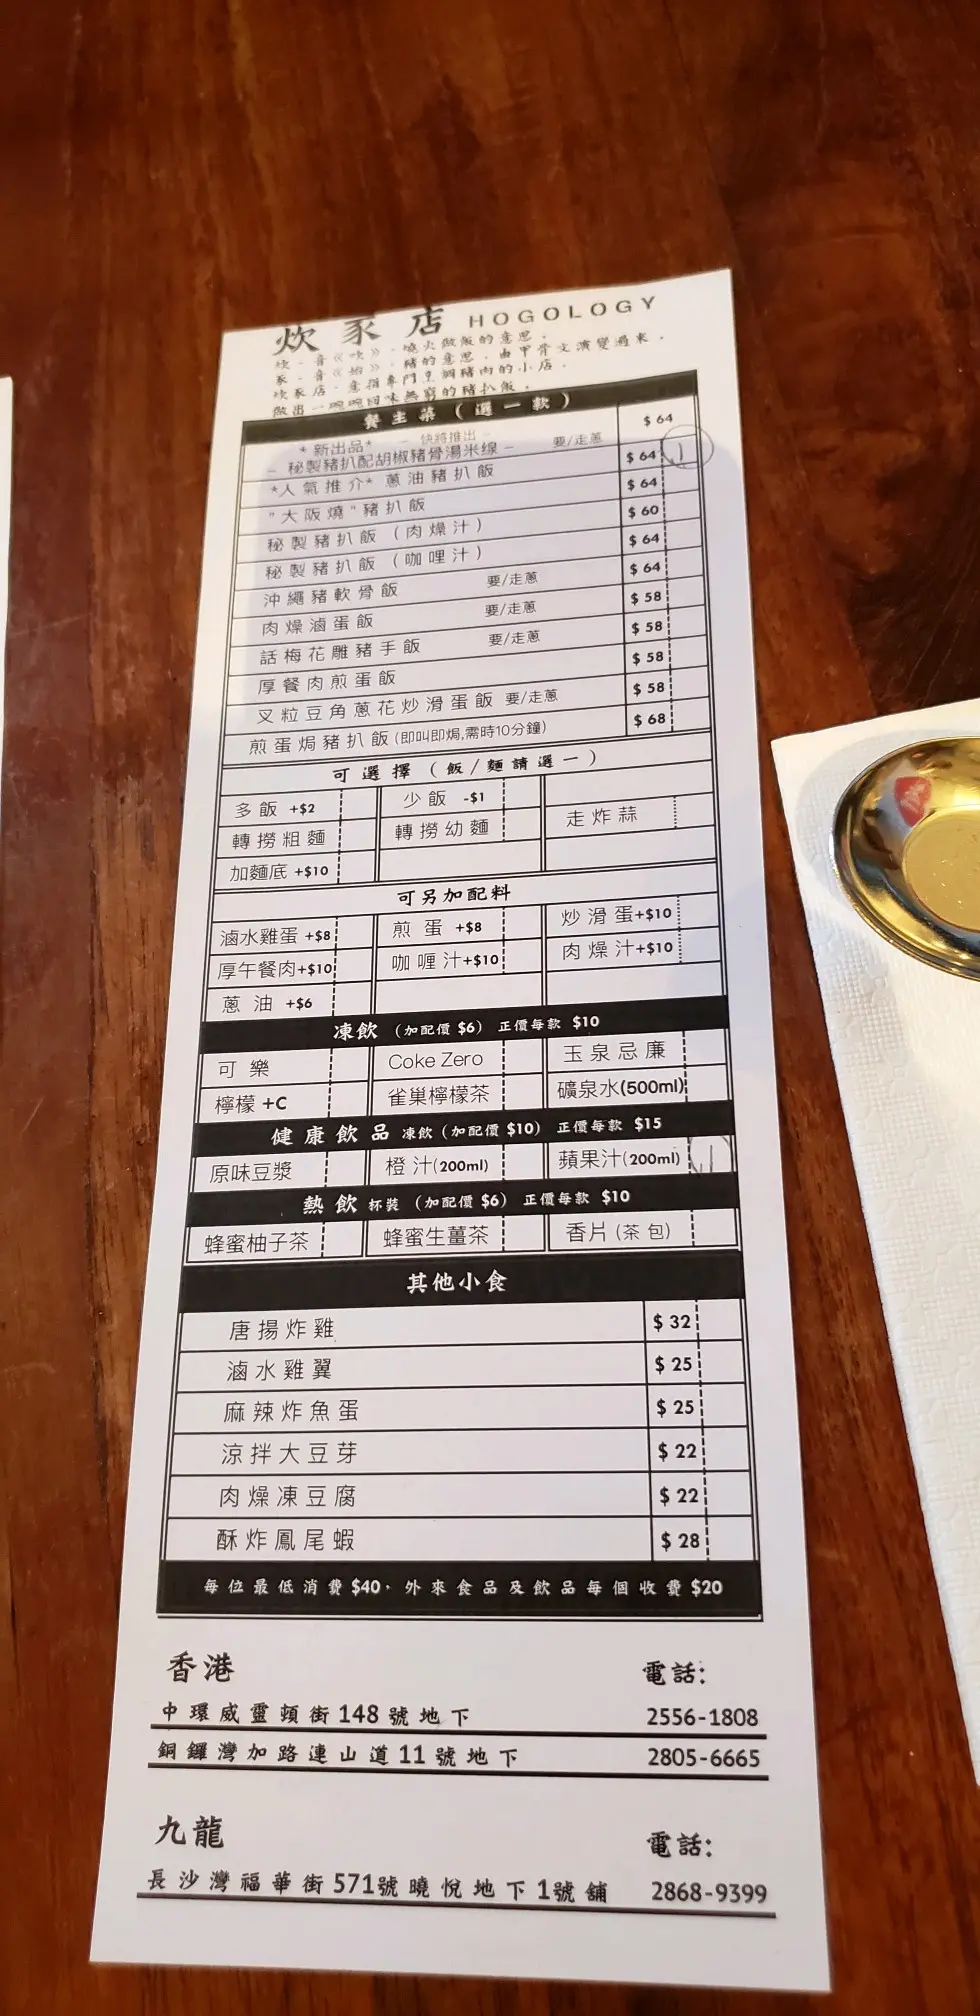 炊豕店 HOGOLOGY
炊．音《吹》．燒火做飯的意思．
豕．音《始》．豬的意思．由甲骨文演變過來．
炊豕店．意指專門烹調豬肉的小店．
做出一碗碗回味無窮的豬扒飯．
餐主菜（選一款）
*新出品* - 快將推出 - $64
- 秘製豬扒配胡椒豬骨湯米線 - 要/走蔥
*人氣推介* 蔥油豬扒飯 $64 1
"大阪燒"豬扒飯 $64
秘製豬扒飯（肉燥汁） $60
秘製豬扒飯（咖哩汁） $64
沖繩豬軟骨飯 要/走蔥 $64
肉燥滷蛋飯 要/走蔥 $58
話梅花雕豬手飯 要/走蔥 $58
厚餐肉煎蛋飯 $58
叉粒豆角蔥花炒滑蛋飯 要/走蔥 $58
煎蛋焗豬扒飯(即叫即焗,需時10分鐘) $68
可選擇（飯/麵請選一）
多飯 +$2 少飯 -$1
轉撈粗麵 轉撈幼麵 走炸蒜
加麵底 +$10
可另加配料
滷水雞蛋 +$8 煎蛋 +$8 炒滑蛋+$10
厚午餐肉+$10 咖喱汁+$10 肉燥汁+$10
蔥油 +$6
凍飲 (加配價 $6) 正價每款 $10
可樂 Coke Zero 玉泉忌廉
檸檬 +C 雀巢檸檬茶 礦泉水(500ml)
健康飲品 凍飲 (加配價 $10) 正價每款 $15
原味豆漿 橙汁(200ml) 蘋果汁(200ml)
熱飲 杯裝 (加配價 $6) 正價每款 $10
蜂蜜柚子茶 蜂蜜生薑茶 香片 (茶包)
其他小食
唐揚炸雞 $32
滷水雞翼 $25
麻辣炸魚蛋 $25
涼拌大豆芽 $22
肉燥凍豆腐 $22
酥炸鳳尾蝦 $28
每位最低消費 $40，外來食品及飲品每個收費 $20
香港 電話:
中環威靈頓街148號地下 2556-1808
銅鑼灣加路連山道11號地下 2805-6665
九龍 電話:
長沙灣福華街571號曉悅地下1號舖 2868-9399